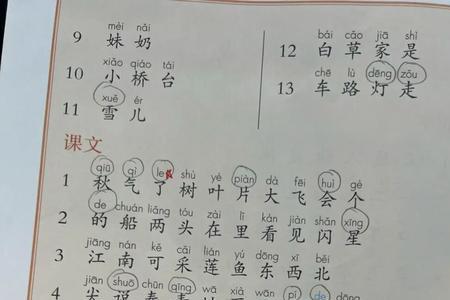 mèi nǎi
9 妹 奶
xiǎo qiáo tái
10 小 桥 台
xuě ér
11 雪 儿
bái cǎo jiā shì
12 白 草 家 是
chē lù dēng zǒu
13 车 路 灯 走
课文
qiū qì le shù yè piàn dà fēi huì gè
1 秋 气 了 树 叶 片 大 飞 会 个
de chuán liǎng tóu zài lǐ kàn jiàn shǎn xīng
2 的 船 两 头 在 里 看 见 闪 星
jiāng nán kě cǎi lián yú dōng xī běi
3 江 南 可 采 莲 鱼 东 西 北
jiān shuō chūn qīng
4 尖 说 春 青